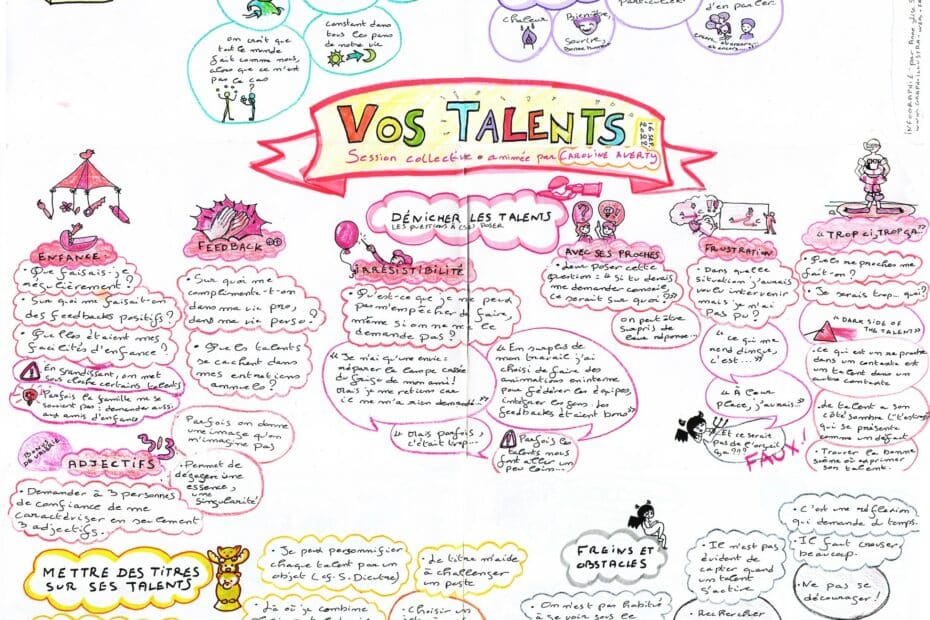 on croit que
tout le monde
fait comme nous,
alors que ce n'est
pas le cas
constant dans
tous les pans
de notre vie
chaleur
Bien-être,
sourire,
bonne humeur
d'en parler
INFOGRAPHIE : par Anne
VOS TALENTS
16 SEPT
2022
Session collective • animée par CAROLINE AVERTY
DÉNICHER LES TALENTS
LES QUESTIONS À (SE) POSER
ENFANCE
• Que faisais-je
régulièrement ?
• Sur quoi me faisait-on
des feedbacks positifs ?
• Quelles étaient mes
facilités d'enfance ?
En grandissant, on met
sous cloche certains talents
Parfois la famille ne se
souvient pas : demander aussi
aux amis d'enfance
FEEDBACK
• Sur quoi me
complimente-t-on
dans ma vie pro,
dans ma vie perso ?
• Quels talents
se cachent dans
mes entretiens
annuels ?
IRRÉSISTIBILITÉ
• Qu'est-ce que je ne peux
pas m'empêcher de faire,
même si on ne me le
demande pas ?
"Je n'ai qu'une envie :
réparer la lampe cassée
du garage de mon ami !
Mais je me retiens car
il ne m'a rien demandé..."
"Mais parfois,
c'était trop..."
"En surplus de
mon travail j'ai
choisi de faire des
animations en interne
pour fédérer les équipes,
intégrer les gens : les
feedbacks étaient bons"
Parfois les
talents nous
font aller un
peu loin...
AVEC SES PROCHES
• Leur poser cette
question : "si tu devais
me demander conseil,
ce serait sur quoi ?"
On peut être
surpris de
leur réponse...
FRUSTRATION
• Dans quelle
situation j'aurais
voulu intervenir
mais je n'ai
pas pu ?
"ce qui me
rend dingue,
c'est..."
"À leur
place, j'aurais..."
Et ce serait
pas de l'orgueil
ça ???
FAUX !
"TROP CI, TROP ÇA"
• Quels reproches me
fait-on ?
• Je serais trop... quoi ?
"DARK SIDE OF
THE TALENT"
• ce qui est un reproche
dans un contexte est
un talent dans un
autre contexte
Le talent a son
côté sombre
qui se présente
comme un défaut
• Trouver la bonne
scène où exprimer
son talent.
3
ADJECTIFS
• Demander à 3 personnes
de confiance de me
caractériser en seulement
3 adjectifs.
Parfois on donne
une image qu'on
n'imagine pas
• Permet de
dégager une
essence,
une
singularité
METTRE DES TITRES
SUR SES TALENTS
• Je peux personnifier
chaque talent par un
objet (cf. S. Dieutre)
• Là où je combine
• Le titre m'aide
à challenger
un poste
• Choisir un
FREINS ET
OBSTACLES
• On n'est pas habitué
à se voir sous le
• Il n'est pas
évident de
capter quand
un talent
s'active
• Rechercher
• C'est une réflexion
qui demande du temps.
• Il faut creuser
beaucoup.
• Ne pas se
décourager !